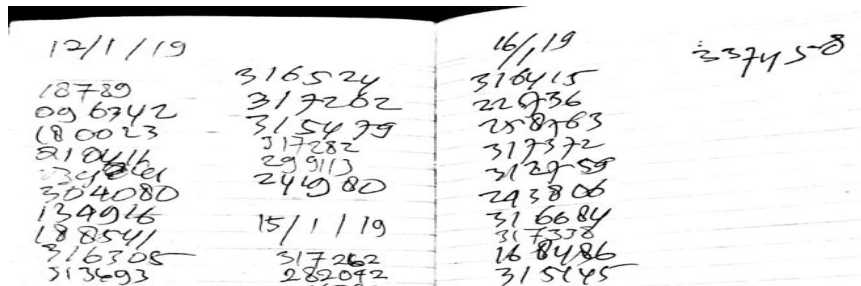 12/1/19
18789
096342
180023
210411
304080
134916
188541
316305
313693
316524
317262
315479
317282
299113
244980
15/1/19
317262
282092
16/1/19
316415
226736
258763
317372
312759
243806
316684
317338
168486
315445
337458